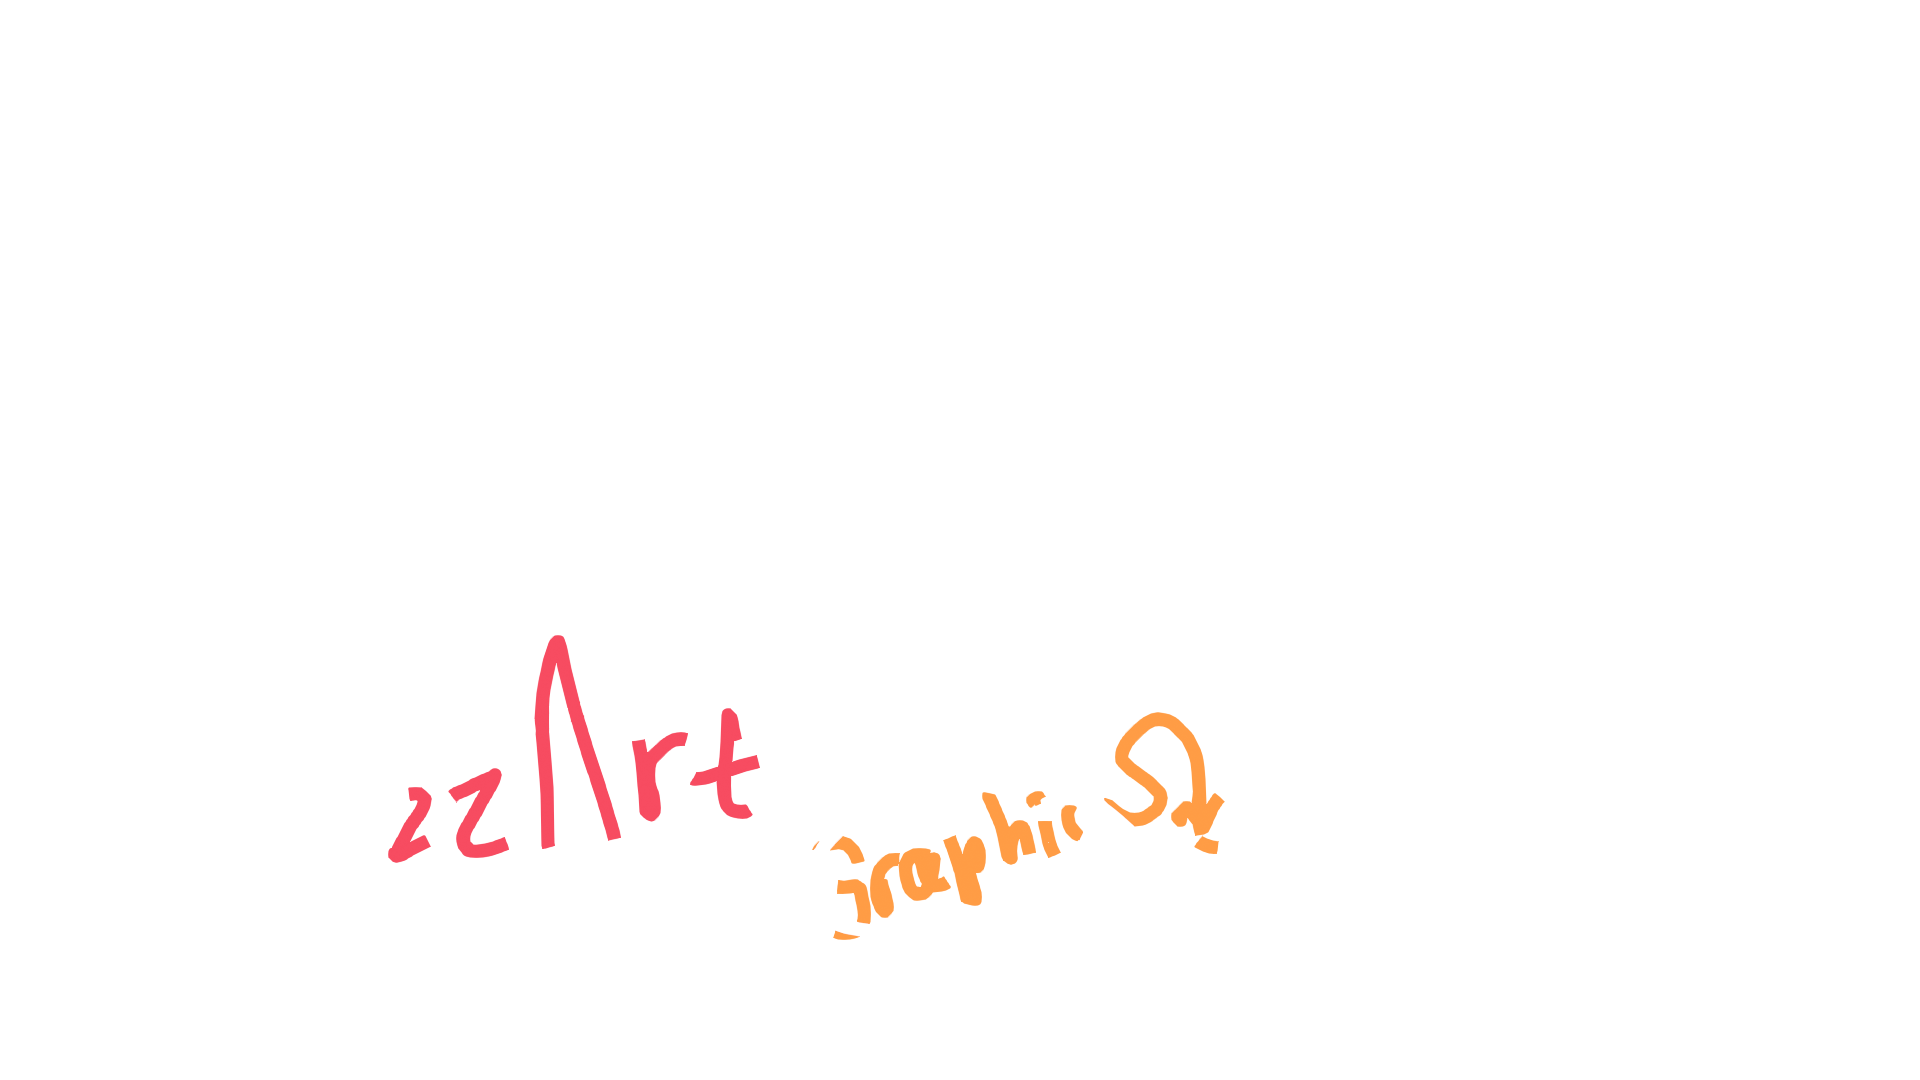 zzArt
Graphics